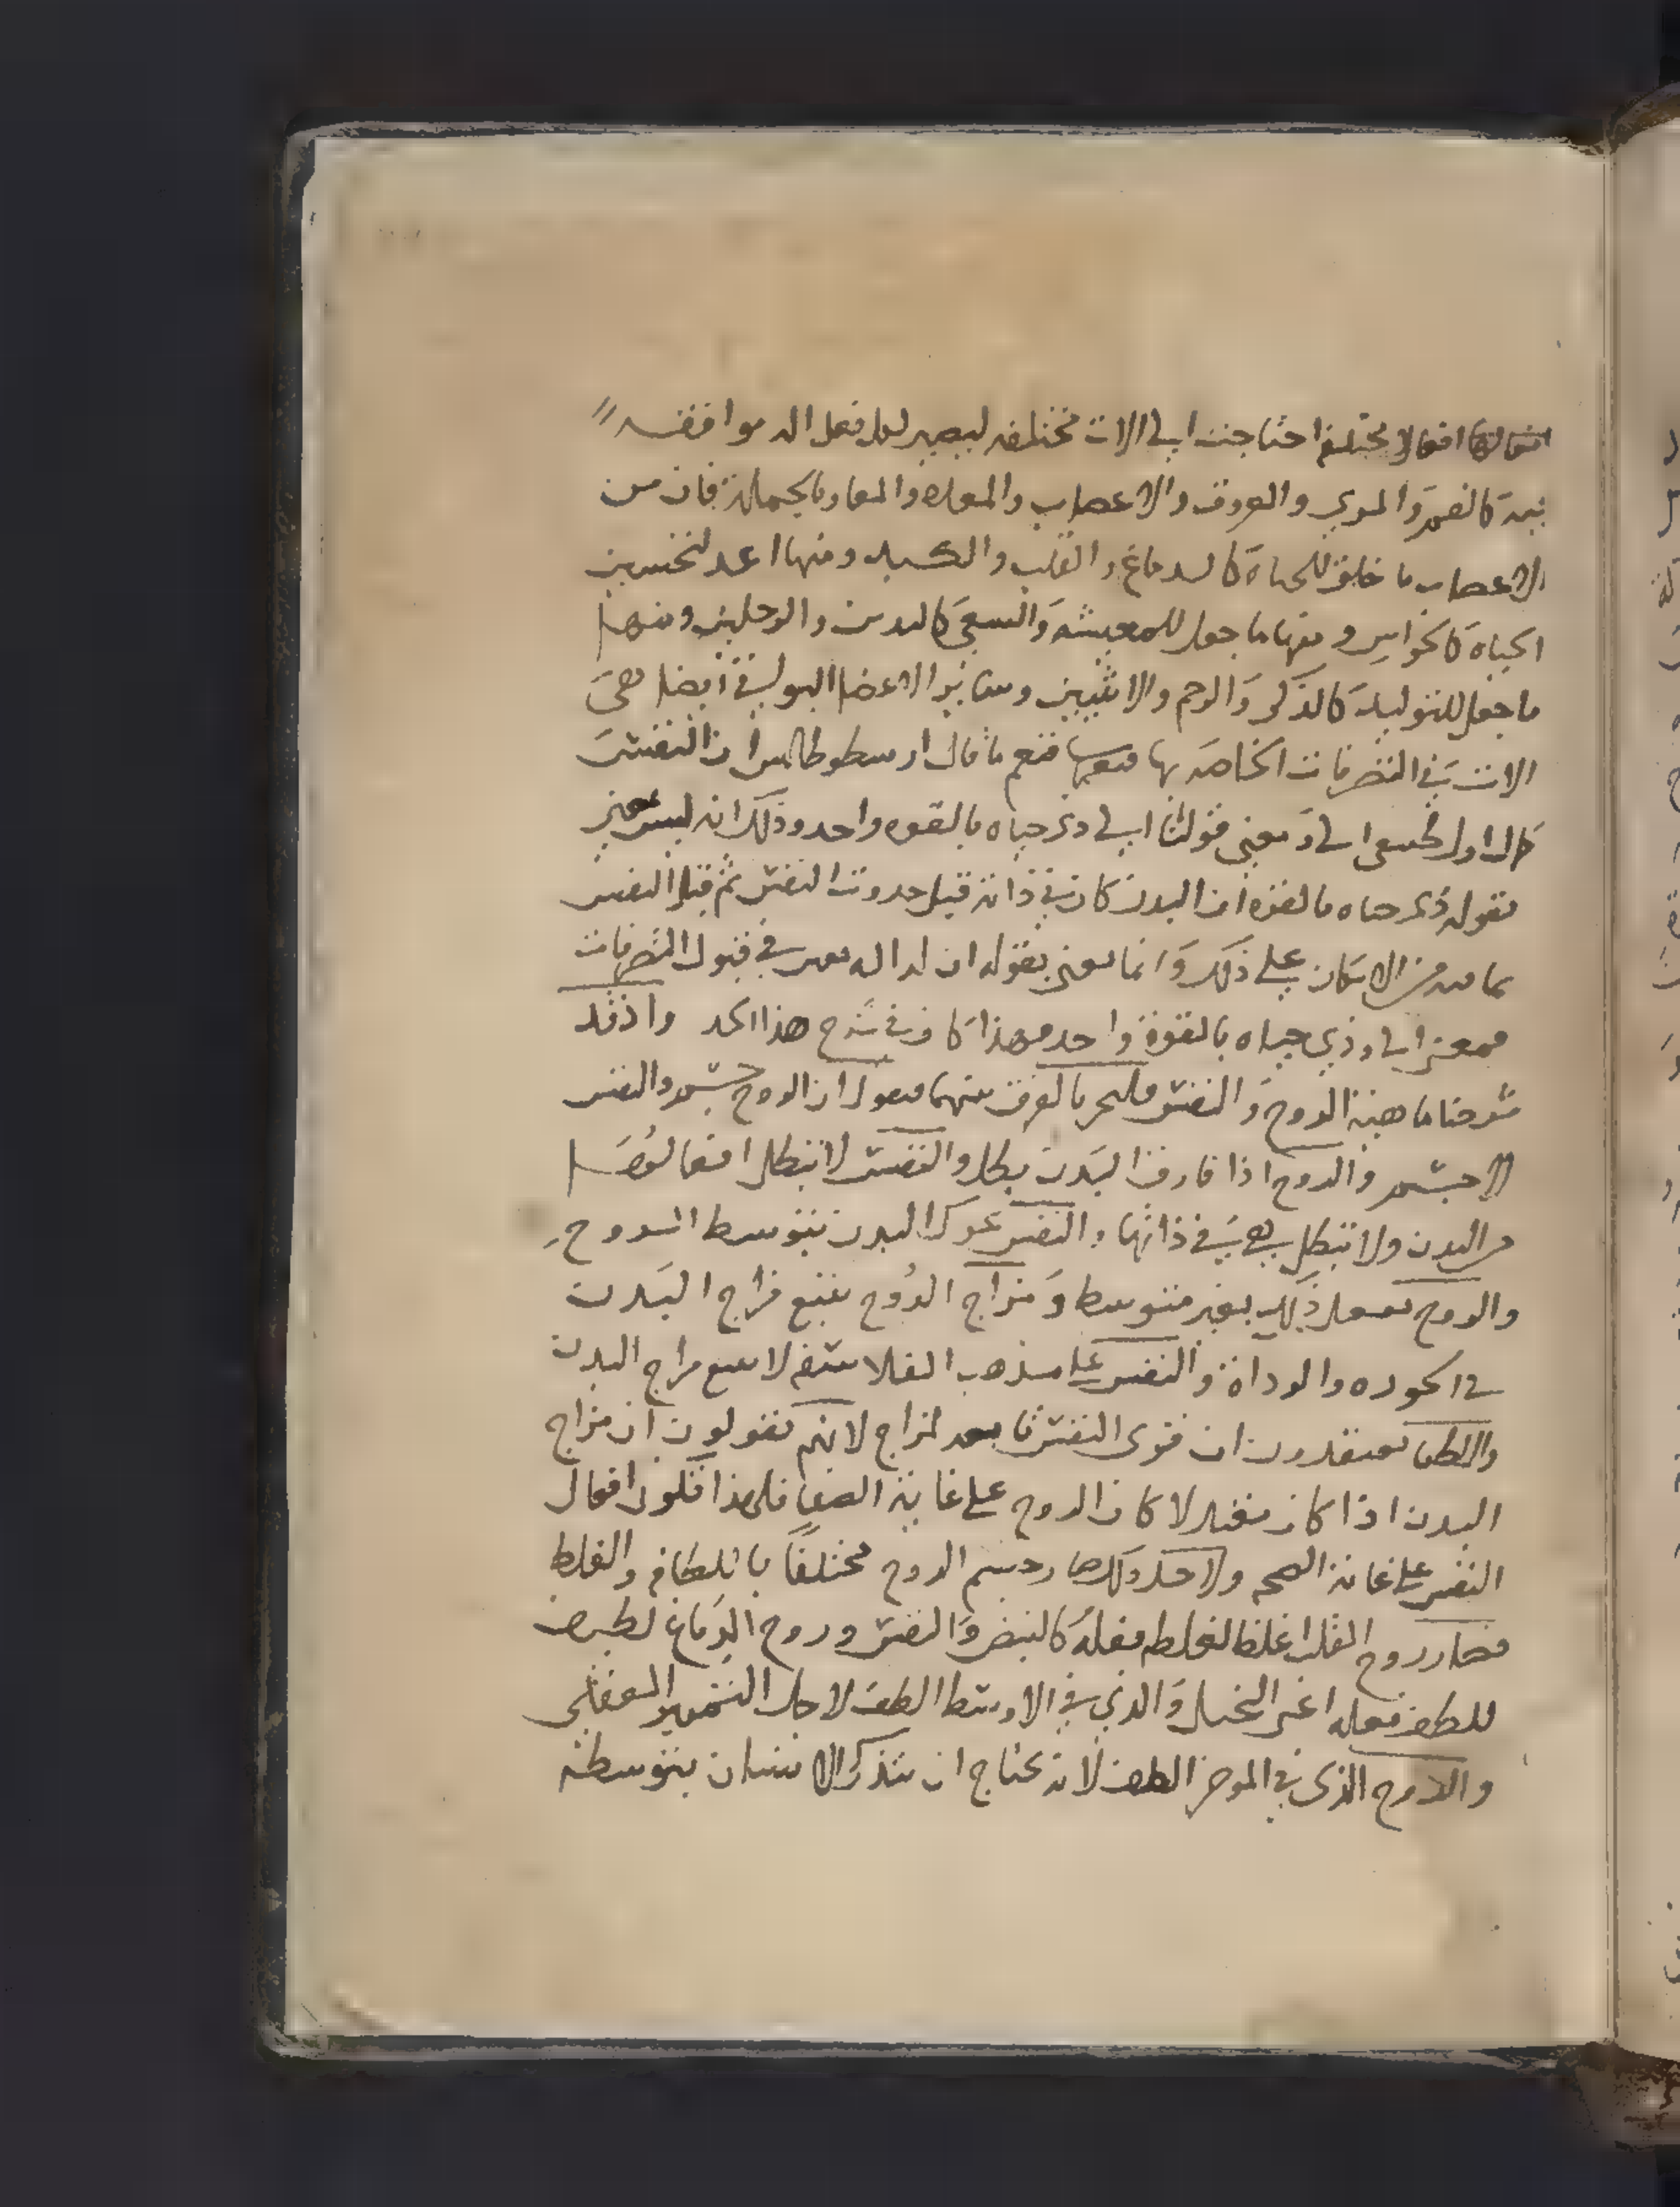 افعالها افعالا مختلفة احتاجت الى الات مختلفه ليصير لكل فعل اله موافقه
كالفم والمري والعروق والاعصاب والمعده والمعا وبالجملة فان من
الاعصاب ما خلق للحياة كالدماغ والقلب والكبد ومنها اعد لتحسين
الحياة كالحواس ومنها ما جعل للمعيشه والسعي كاليدين والرجلين ومنها
ما جعل للتوليد كالذكر والرحم والانثيين وسائر الاعضا البواقي ايضا هي
الات في التصرفات الخاصه بها فنعم ما قال ارسطوطاليس ان النفس
كمال اول لجسم الي ومعنى قولنا الي وذي حياه بالقوه واحد وذلك انه ليس يعني
بقوله ذي حياه بالقوه ان البدن كان في ذاته قبل حدوث النفس ثم قبل النفس
بما فيه من الامكان على ذلك وانما يعني بقوله ان له اله في قبول التصرفات
فمعنى الي وذي حياه بالقوة واحد فهذا كاف في شرح هذا الحد واذ قد
شرحنا ماهية الروح والنفس بالفرق بينهما فنقول ان الروح جسم والنفس
لا جسم والروح اذا فارق البدن بطل والنفس لا تبطل افعالها
من البدن ولا تبطل هي في ذاتها والنفس تحرك البدن بتوسط الروح
والروح تفعل ذلك بغير متوسط ومزاج الروح يتبع مزاج البدن
في الجوده والرداة والنفس على مذهب الفلاسفه لا يتبع مزاج البدن
والاطبا يعتقدون ان قوى النفس تابعه لمزاج لانهم يقولون ان مزاج
البدن اذا كان معتدلا كان الروح على غاية الصفا فلهذا تكون افعال
النفس على غاية الصحه ولاجل ذلك صار جسم الروح مختلفا باللطافه والغلظ
فصار روح القلب اغلظ لغلظ فعله كالنبض والنفس وروح الدماغ لطيف
للطف فعله اعني التخيل والذي في الاوسط الطف لاجل التمييز العقلي
والروح الذي في الموخر الطف لانه يحتاج ان يتذكر الانسان بتوسطه